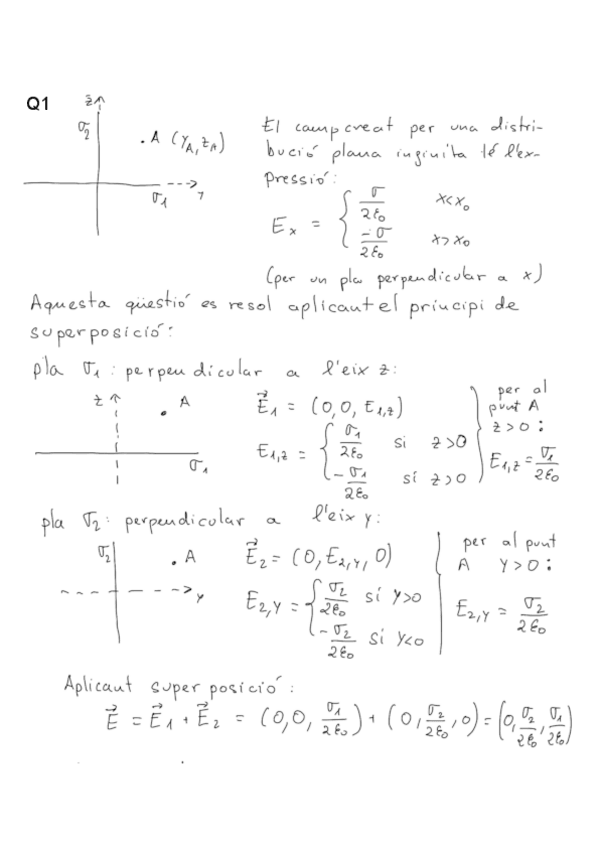 Q1
z
σ₂
. A (Y_A, z_A)
σ₁ y
El camp creat per una distri-
bució plana inginita té l'ex-
pressió:
E_x = { σ/2ε₀ x<x₀
-σ/2ε₀ x>x₀
(per un pla perpendicular a x)
Aquesta qüestió es resol aplicant el principi de
superposició:
pla σ₁: perpendicular a l'eix z:
z A
σ₁
E⃗₁ = (0,0, E₁,z)
E₁,z = { σ₁/2ε₀ si z>0
-σ₁/2ε₀ sí z>0
per al
punt A
z>0:
E₁,z = σ₁/2ε₀
pla σ₂: perpendicular a l'eix y:
σ₂ A
y
E⃗₂ = (0, E₂,y, 0)
E₂,y = { σ₂/2ε₀ sí y>0
-σ₂/2ε₀ sí y<0
per al punt
A y>0:
E₂,y = σ₂/2ε₀
Aplicant superposició:
E⃗ = E⃗₁ + E⃗₂ = (0,0, σ₁/2ε₀) + (0, σ₂/2ε₀, 0) = (0, σ₂/2ε₀, σ₁/2ε₀)